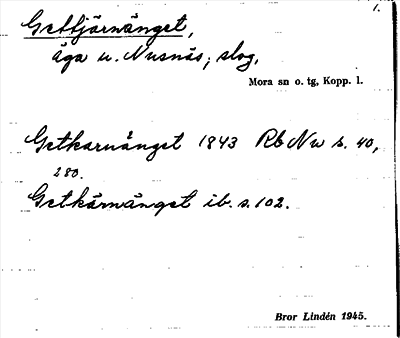 1.
Gettjärnänget,
äga u. Nusnäs, slog,
Mora sn o. tg, Kopp. l.
Getkarnänget 1843 Rb Nw s. 40,
280.
Getkärnänget ib. s. 102.
Bror Lindén 1945.